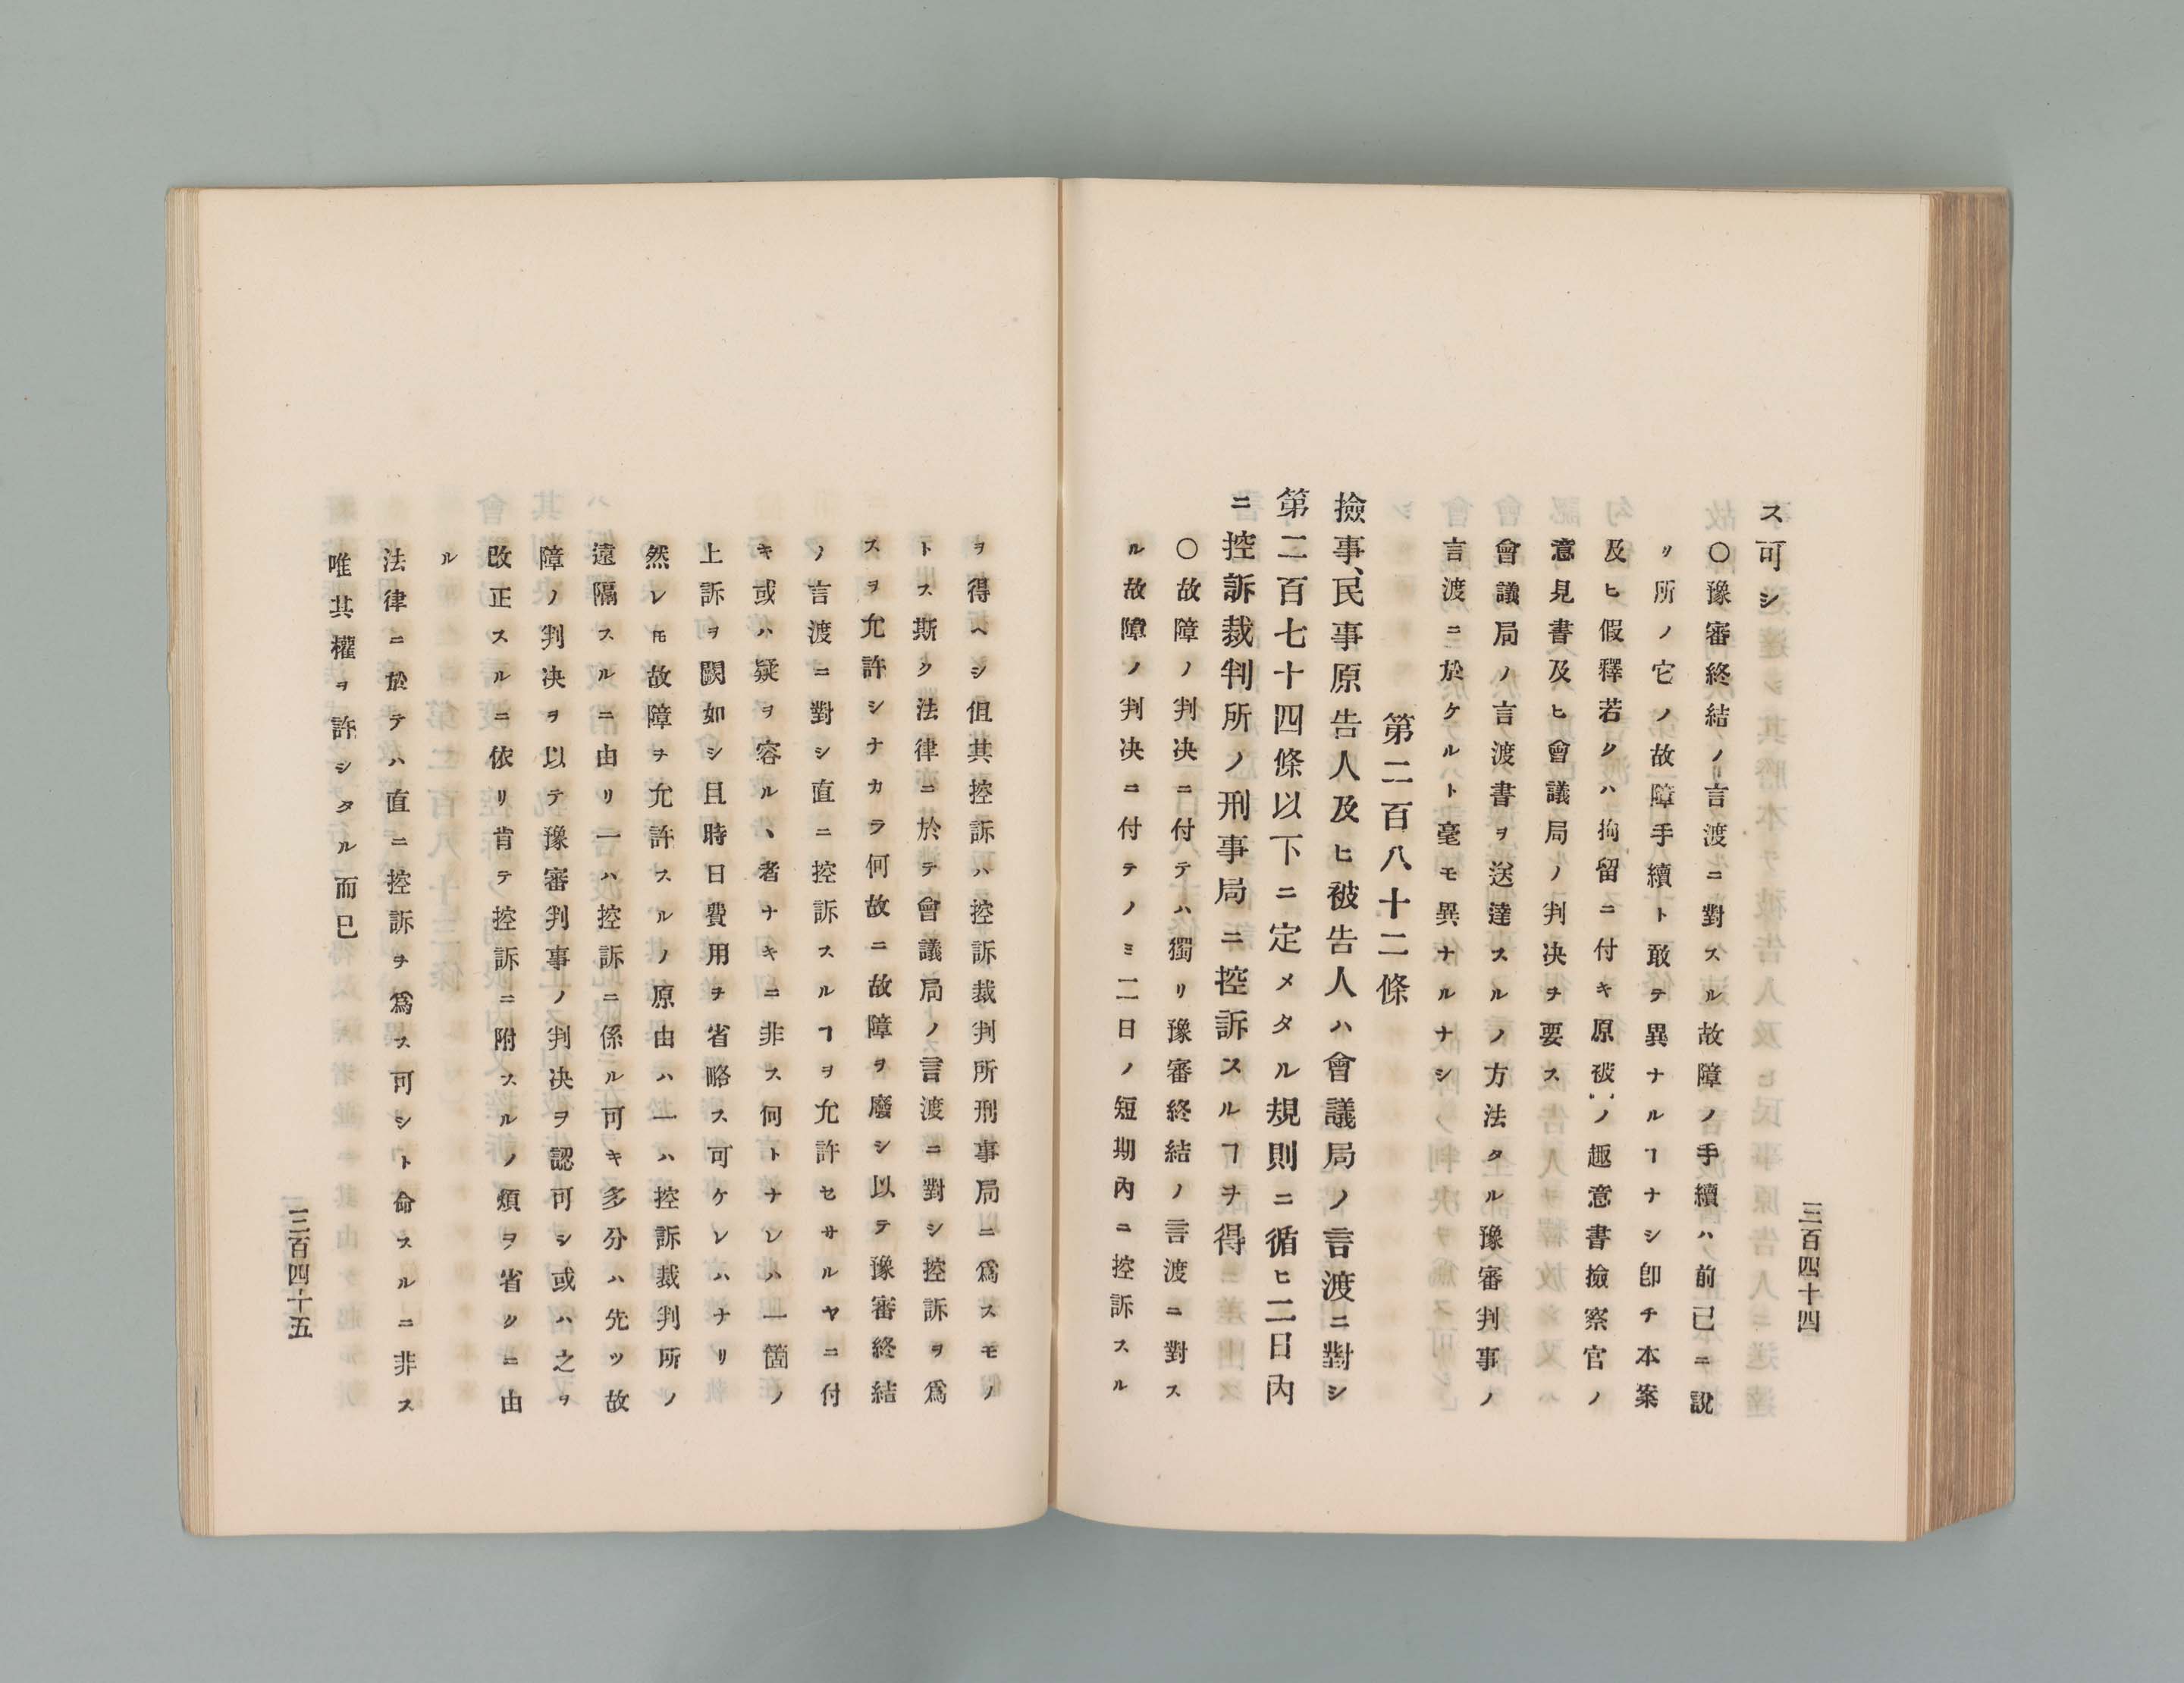 三百四十四
ス可シ
〇豫審終結ノ言渡ニ對スル故障ノ手續ハ前已ニ說
リ所ノ它ノ故障手續ト敢テ異ナルヿナシ卽チ本案
及ヒ假釋若クハ拘留ニ付キ原被ノ趣意書撿察官ノ
意見書及ヒ會議局ノ判决ヲ要ス
會議局ノ言渡書ヲ送達スルノ方法タル豫審判事ノ
言渡ニ於ケルト毫モ異ナルナシ
第二百八十二條
撿事、民事原告人及ヒ被告人ハ會議局ノ言渡ニ對シ
第二百七十四條以下ニ定メタル規則ニ循ヒ二日內
ニ控訴裁判所ノ刑事局ニ控訴スルヿヲ得
〇故障ノ判决ニ付テハ獨リ豫審終結ノ言渡ニ對ス
ル故障ノ判决ニ付テノミ二日ノ短期內ニ控訴スル
ヲ得ヘシ但其控訴ハ控訴裁判所刑事局ニ爲スモノ
トス斯ク法律ニ於テ會議局ノ言渡ニ對シ控訴ヲ爲
スヲ允許シナカラ何故ニ故障ヲ廢シ以テ豫審終結
ノ言渡ニ對シ直ニ控訴スルヿヲ允許セサルヤニ付
キ或ハ疑ヲ容ルヽ者ナキニ非ス何トナレハ一箇ノ
上訴ヲ闕如シ且時日費用ヲ省略ス可ケレハナリ
然レ𪜈故障ヲ允許スルノ原由ハ一ハ控訴裁判所ノ
遠隔スルニ由リ一ハ控訴ニ係ル可キ多分ハ先ツ故
障ノ判决ヲ以テ豫審判事ノ判决ヲ認可シ或ハ之ヲ
改正スルニ依リ肯テ控訴ニ附スルノ煩ヲ省クニ由
ル
法律ニ於テハ直ニ控訴ヲ爲ス可シト命スルニ非ス
唯其權ヲ許シタル而已
三百四十五